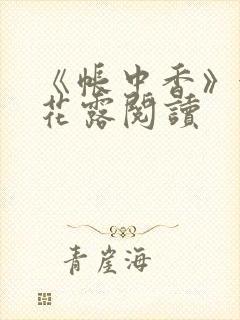 《帳中香》
花露閱讀
青崖海